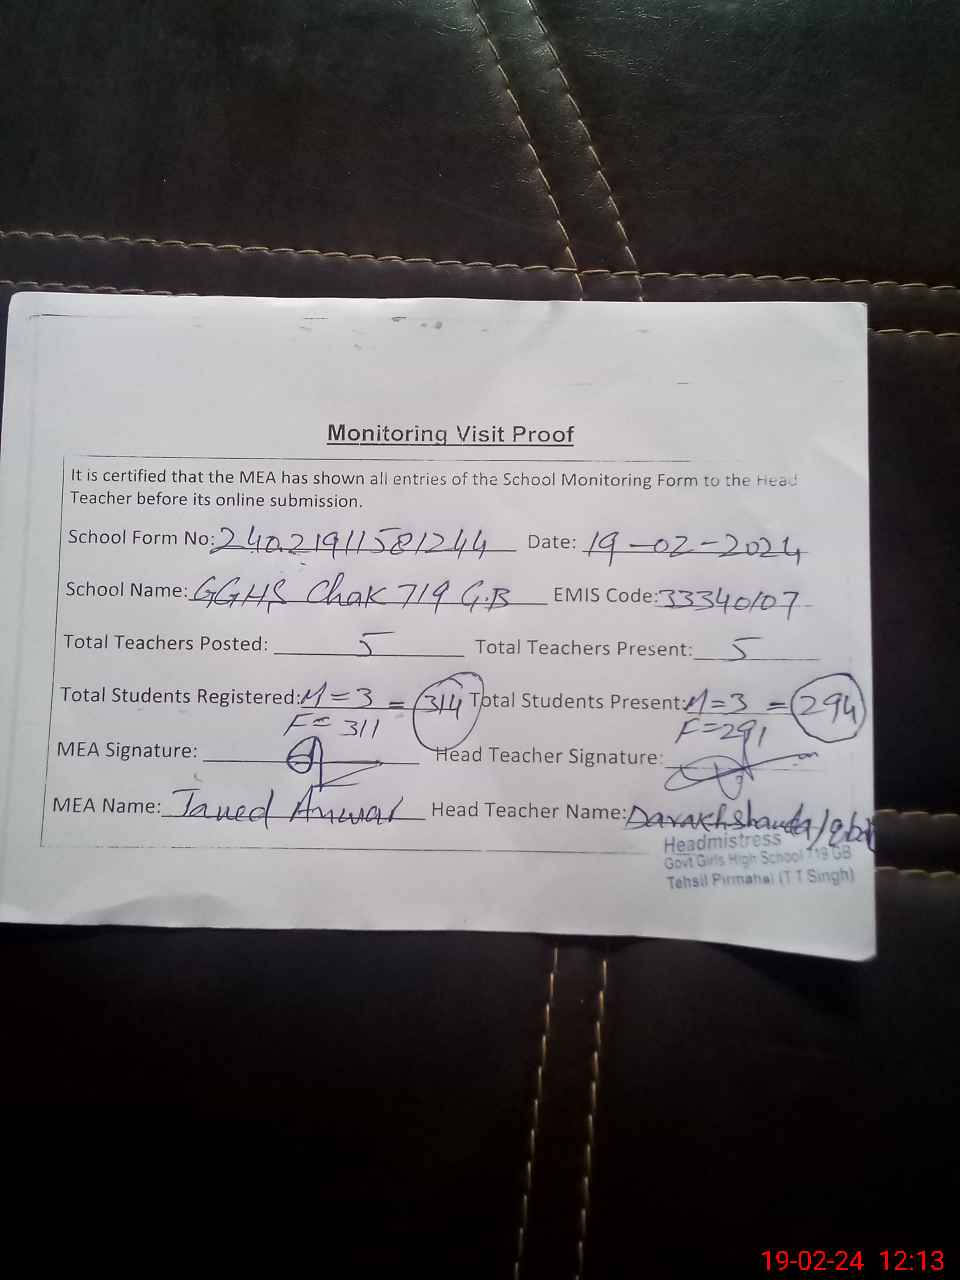 Monitoring Visit Proof
It is certified that the MEA has shown all entries of the School Monitoring Form to the Head
Teacher before its online submission.
School Form No: 240.21911581244 Date: 19-02-2024
School Name: GGHS Chak 719 G.B EMIS Code: 33340107
Total Teachers Posted: 5 Total Teachers Present: 5
Total Students Registered: M=3 = 314 Total Students Present: M=3 = 294
F=311 F=291
MEA Signature: Head Teacher Signature:
MEA Name: Javed Anwar Head Teacher Name: Darakhshanda Iqbal
Headmistress
Govt Girls High School 719 GB
Tehsil Pirmahal (T T Singh)
19-02-24 12:13